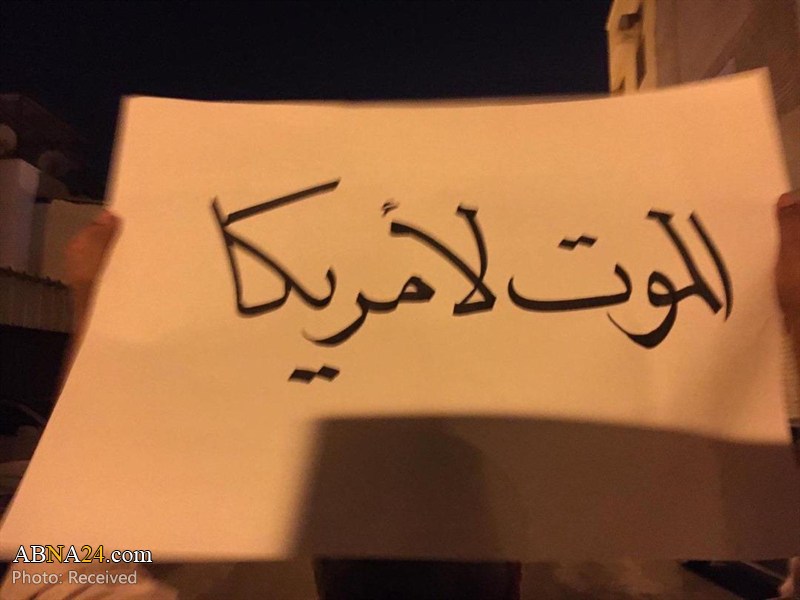 الموت لأمريكا
ABNA24.com
Photo: Received